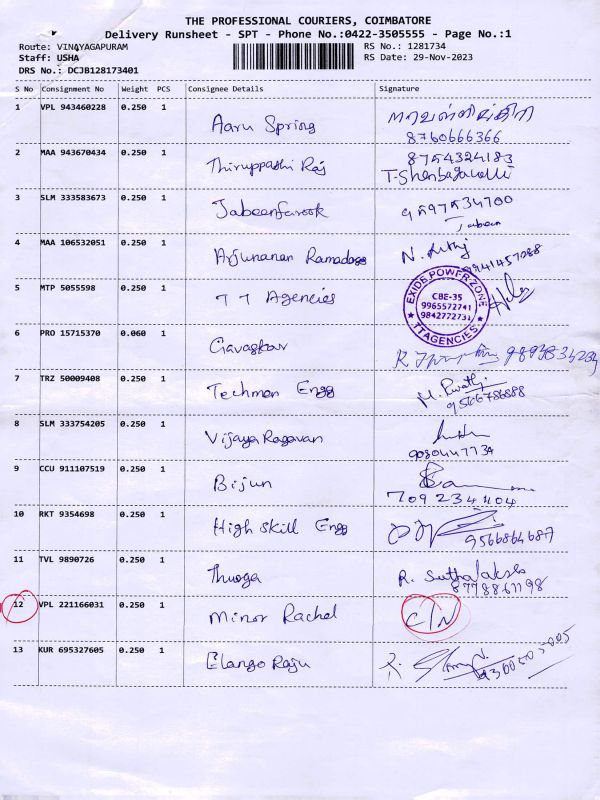 THE PROFESSIONAL COURIERS, COIMBATORE
Delivery Runsheet - SPT - Phone No.:0422-3505555 - Page No.:1
Route: VINAYAGAPURAM RS No.: 1281734
Staff: USHA RS Date: 29-Nov-2023
DRS No.: DCJB128173401
S No Consignment No Weight PCS Consignee Details Signature
1 VPL 943460228 0.250 1 Aaru Spring
8760666366
2 MAA 943670434 0.250 1 Thiruppathi Raj 8754324183
T. Shenbagavalli
3 SLM 333583673 0.250 1 Jabeenfarook 9597534700
Jabeen
4 MAA 106532051 0.250 1 Arjunanan Ramadoss N. 9941457088
5 MTP 5055598 0.250 1 T T Agencies
EXIDE POWER ZONE
CBE-35
9965572741
9842772731
TTAGENCIES
6 PRO 15715370 0.060 1 Gavaskar
7 TRZ 50009408 0.250 1 Techmen Engg M.
9566786888
8 SLM 333754205 0.250 1 Vijaya Ragavan
9080447734
9 CCU 911107519 0.250 1 Bijun
709 234404
10 RKT 9354698 0.250 1 High Skill Engg
9566864687
11 TVL 9890726 0.250 1 Thuoga R.
8778861198
12 VPL 221166031 0.250 1 Minor Rachel C/N
13 KUR 695327605 0.250 1 Elango Raju
9360505005